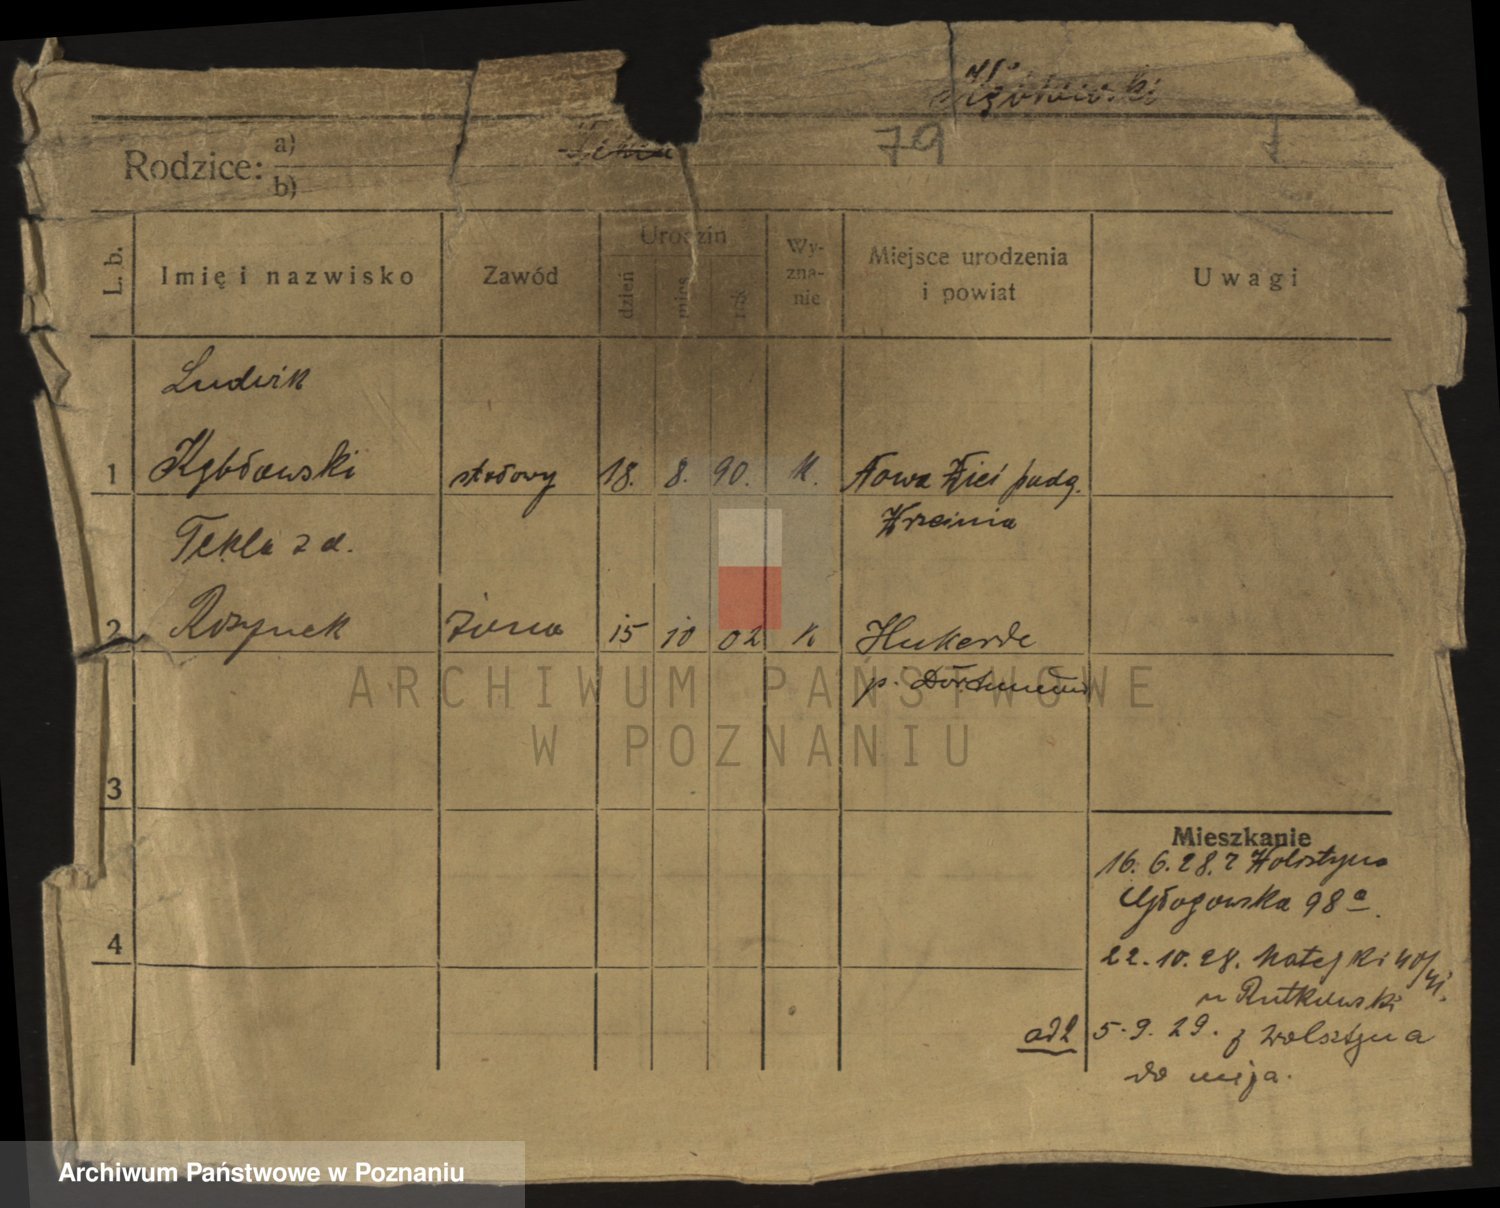 79 1
Rodzice: a)
b)
L. b.
Imię i nazwisko
Zawód
Urodzin
dzień
mies.
rok
Wy-
zna-
nie
Miejsce urodzenia
i powiat
Uwagi
Ludwik
1 stołowy 18. 8. 90. K. Nowa
Września
Tekla z d.
2 Rozynek żona 15 10 02 K Hukarde
p.
3
Mieszkanie
16. 6. 28. z Wolsztyna
Głogowska 98a.
4
22. 10. 28. Matejki 40/41.
u Rutkowski
ad 2 5. 9. 29. z Wolsztyna
do męża.
ARCHIWUM PAŃSTWOWE
W POZNANIU
Archiwum Państwowe w Poznaniu